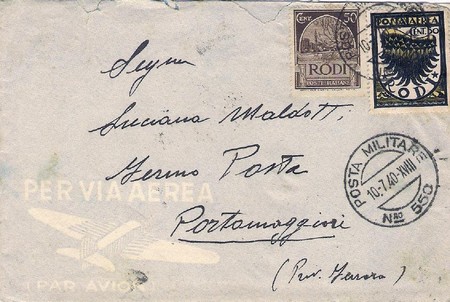 CENT. 50
RODI
POSTE ITALIANE
POSTA AEREA
RODI
Luciana Maldotti
Fermo Posta
PER VIA AEREA
Portomaggiore
(PAR AVION)
POSTA MILITARE
10.7.40-XVIII
Nro 550